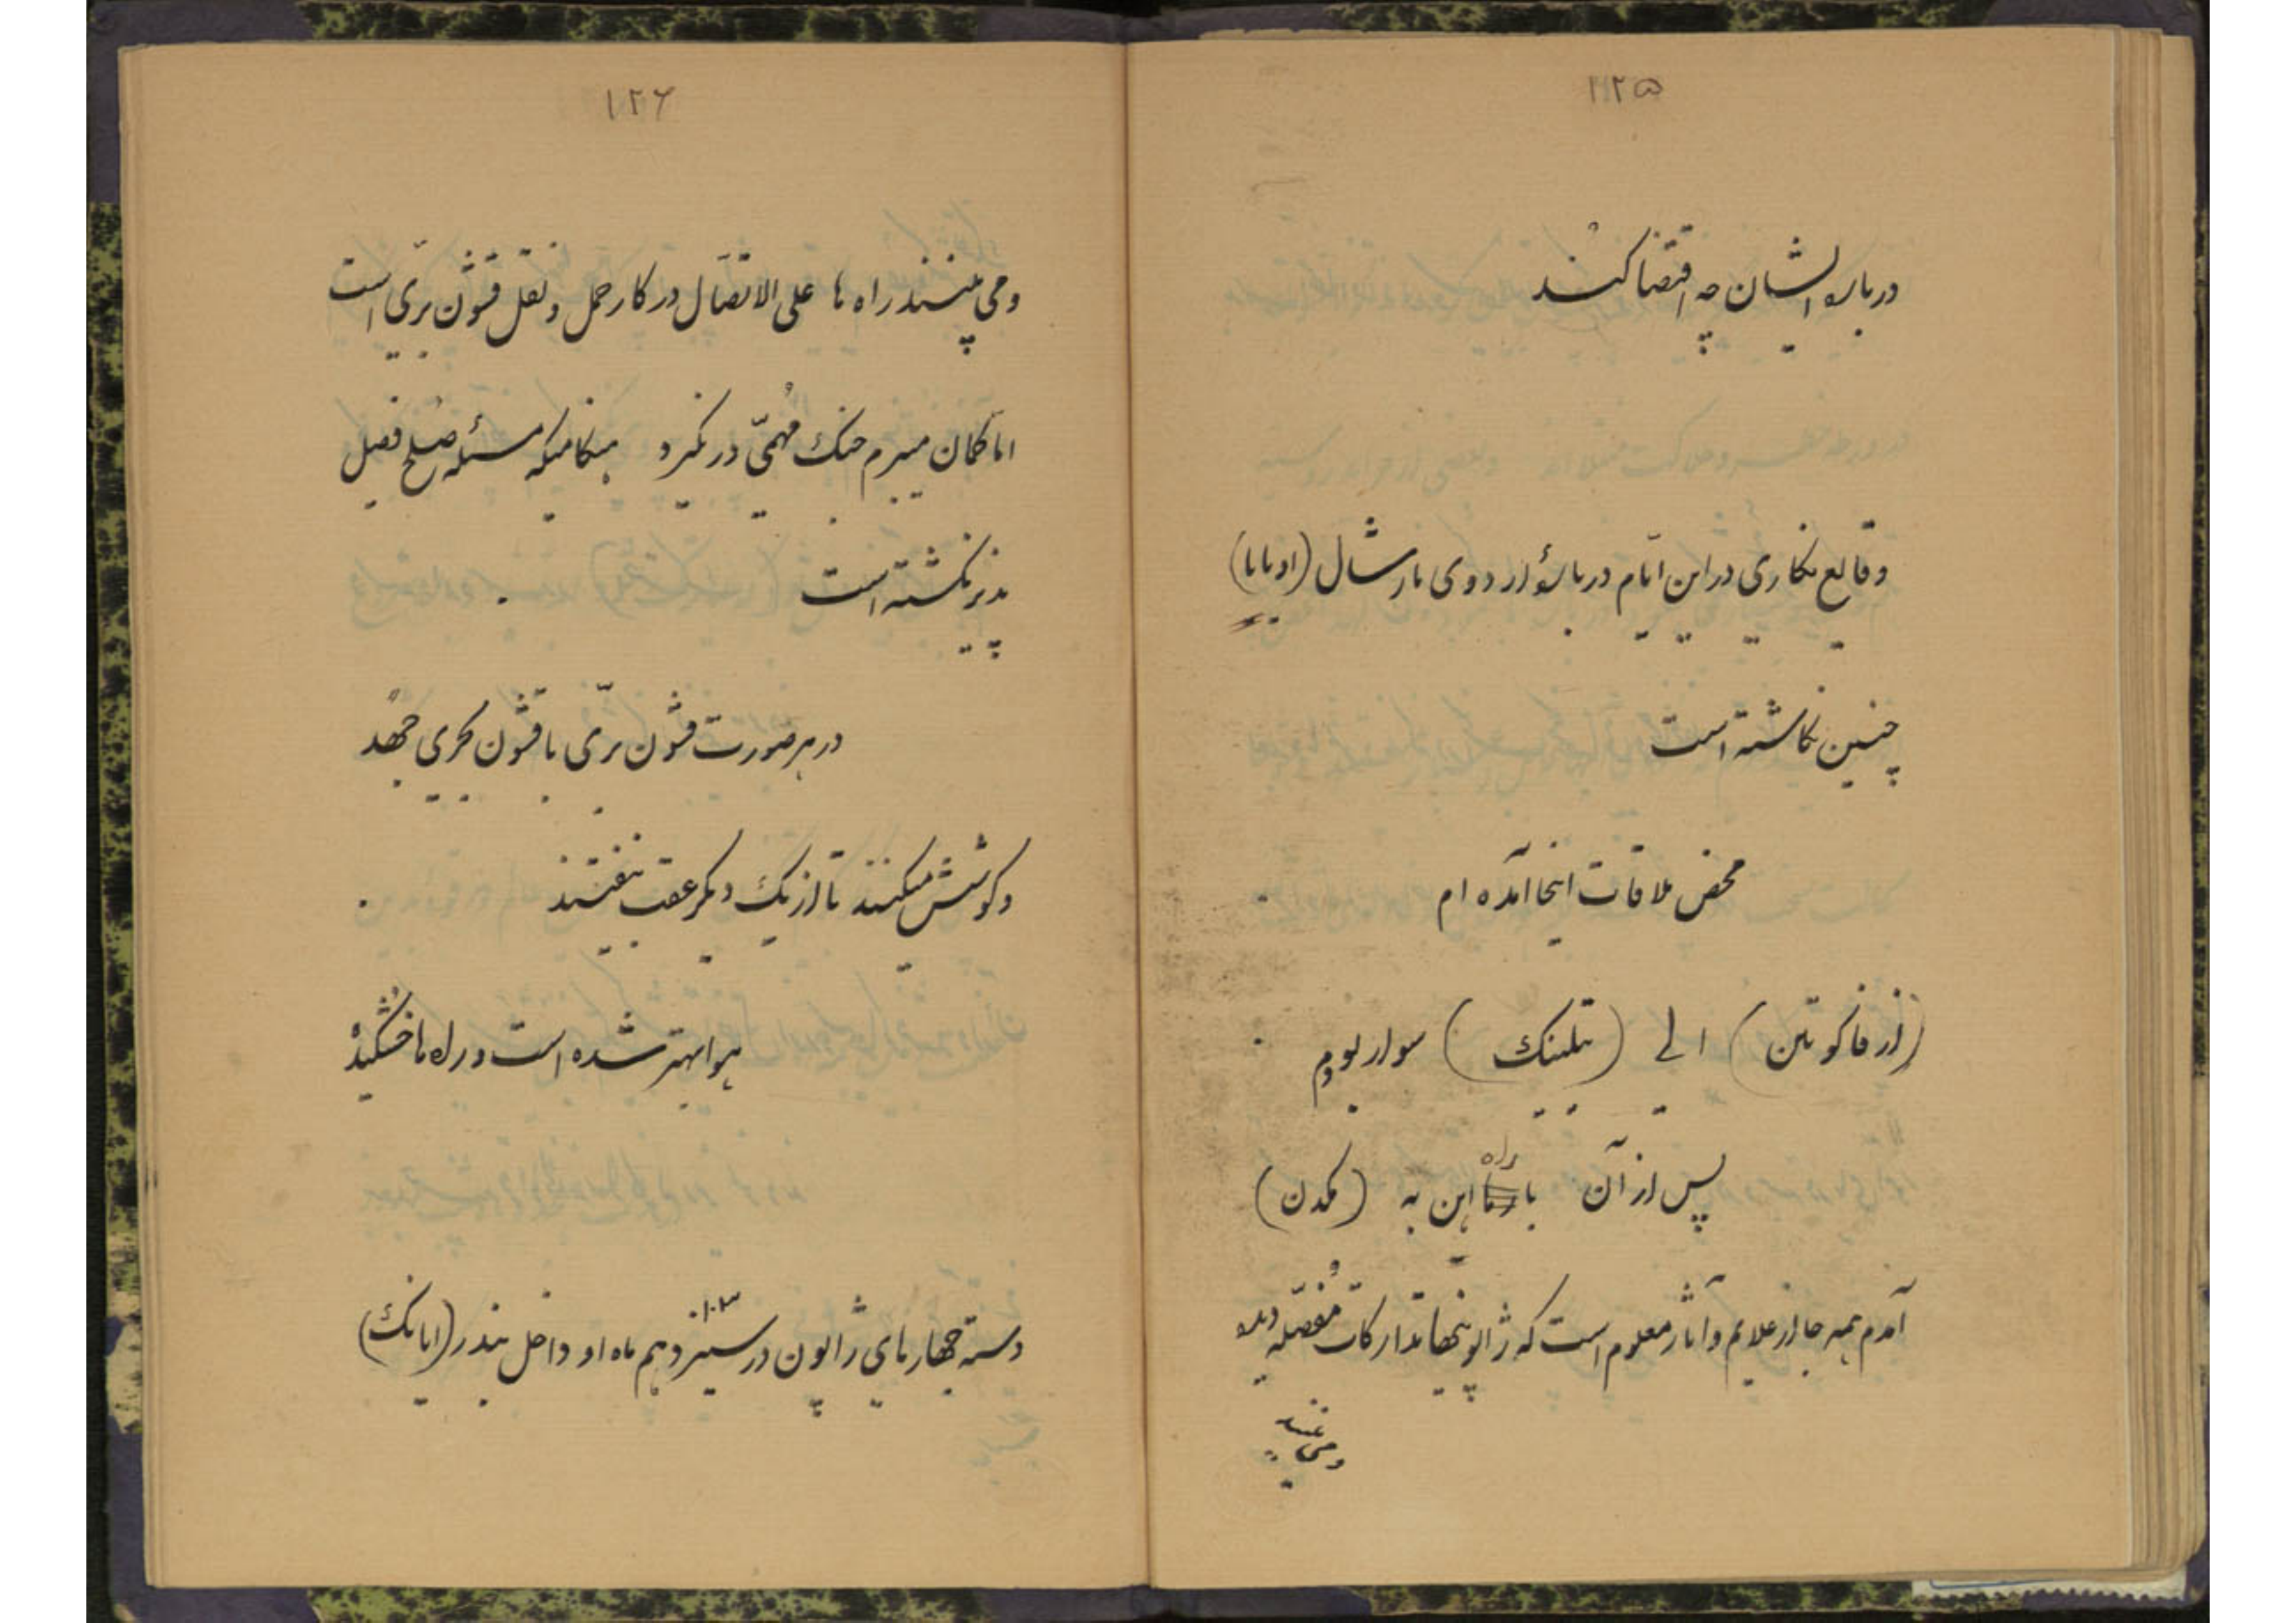 ۱۲۵
درباره ایشان چه اقتضا کند
وقایع نگاری در این ایام درباره اردوی مارشال (اویاما)
چنین نگاشته است
محض ملاقات اینجا آمده ام
(از فاکوتن) الی (تلینک) سوار بودم
پس از آن با راه آهن به (مکدن)
آمدم همه جا از علایم و آثار معلوم است که ژاپونیها تدارکات مفصله دیده
و می بینند
۱۲۶
و می بینند راه ها علی الاتصال در کار حمل و نقل قشون بری است
اما گمان میبرم جنک مهمی در نگیرد هنگامیکه مسئله صلح فیصل
پذیر نگشته است
در هر صورت قشون بری با قشون بحری جهد
و کوشش میکنند تا از یک دیگر عقب نیفتند
هوا بهتر شده است و راه ها خشکیده
دسته جهازهای ژاپون در سیزدهم ماه او داخل بندر (ایانک)